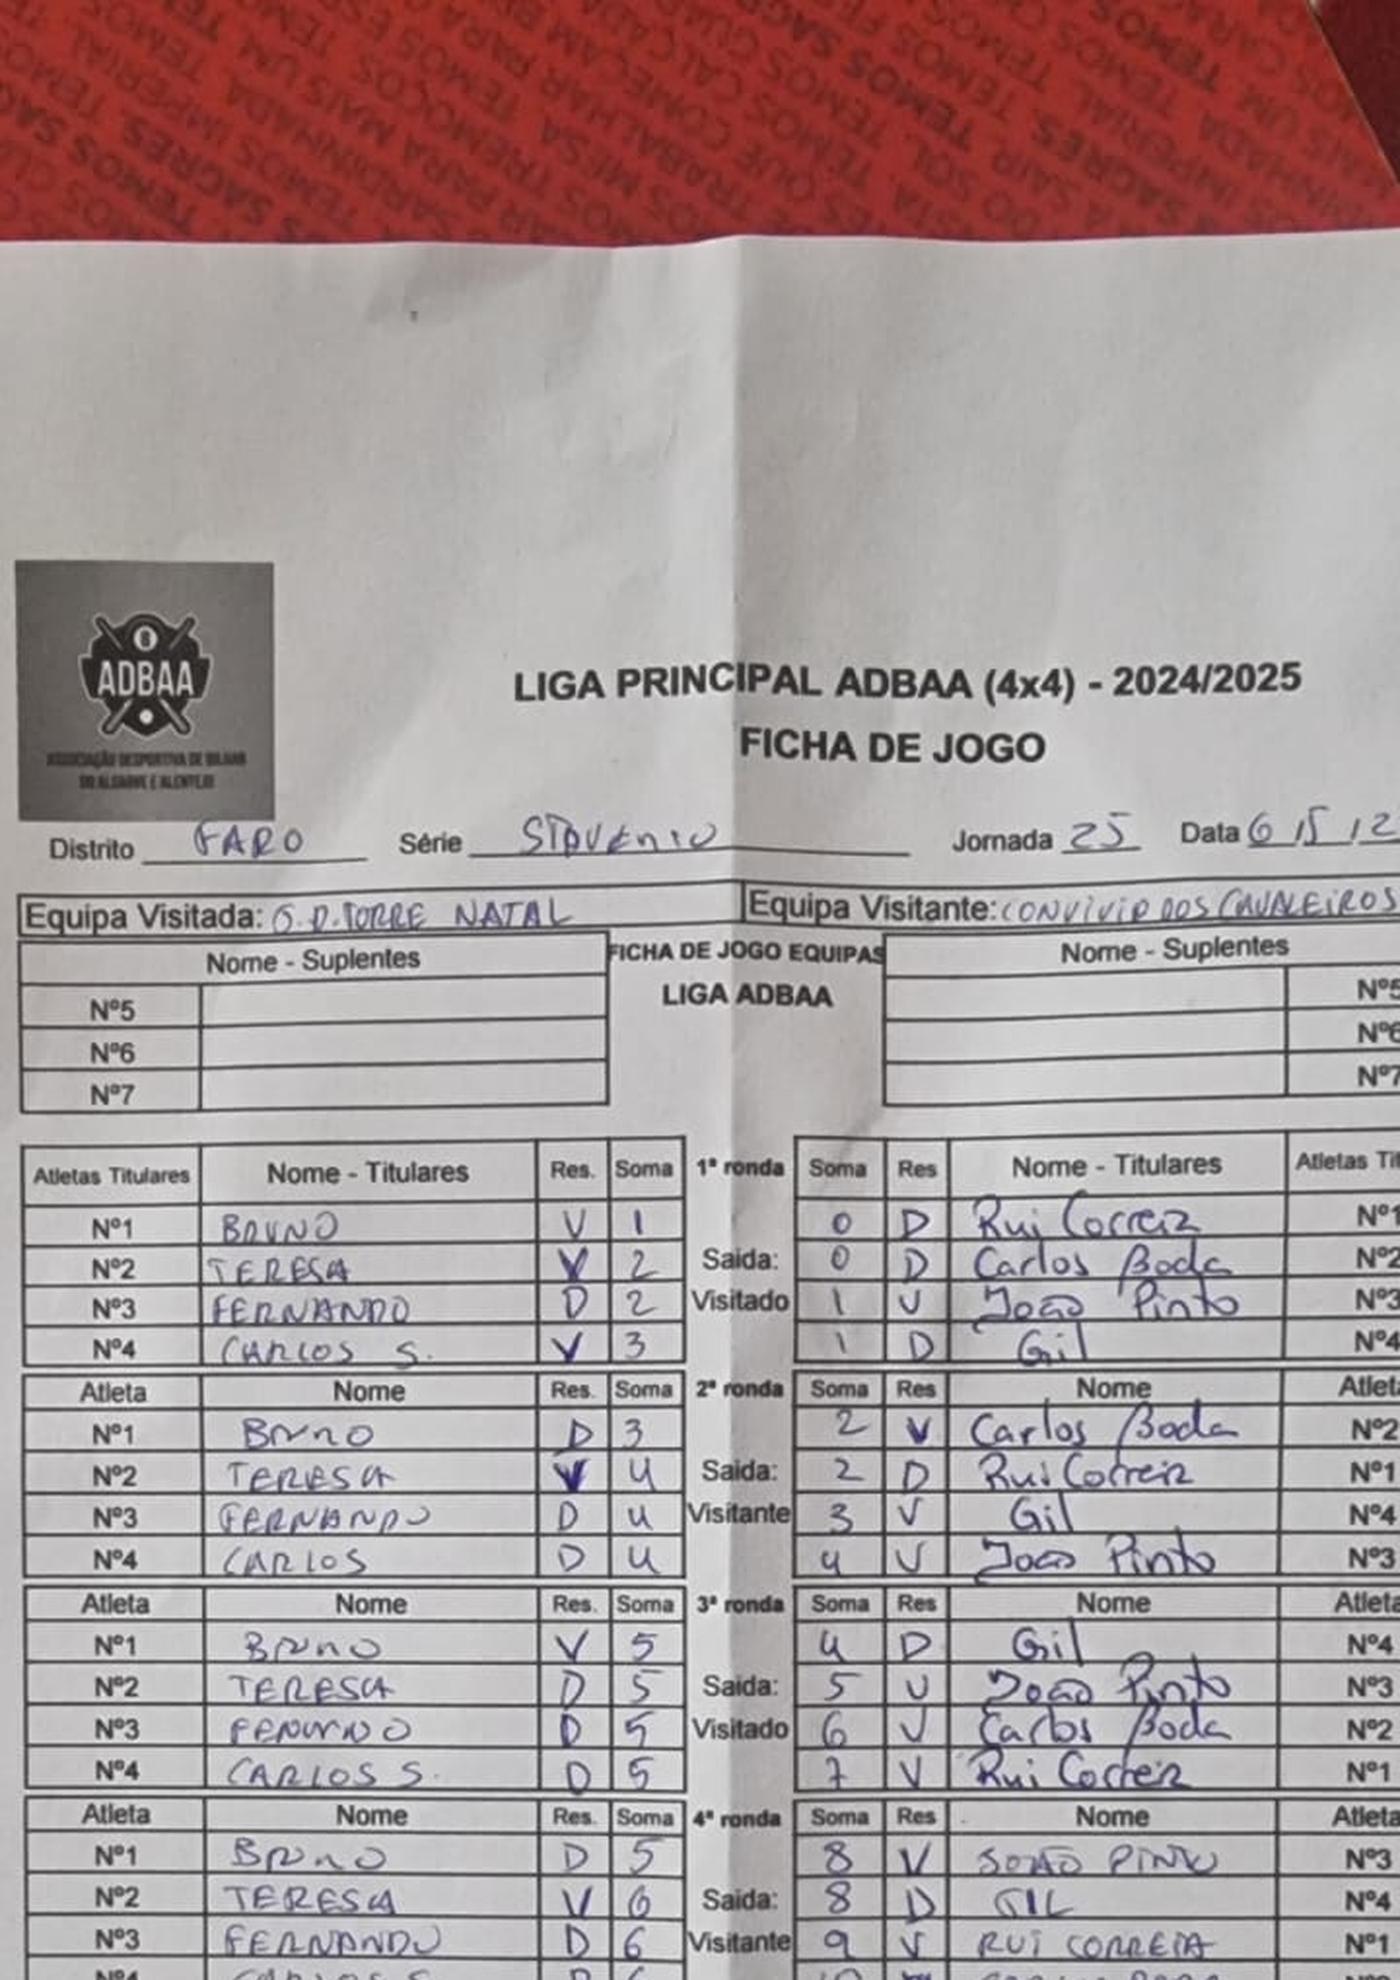 ADBAA
ASSOCIAÇÃO DESPORTIVA DE BILHAR
DO ALGARVE E ALENTEJO
LIGA PRINCIPAL ADBAA (4x4) - 2024/2025
FICHA DE JOGO
Distrito FARO Série Jornada 25 Data 6 / 5 / 2
Equipa Visitada: G.D. TORRE NATAL Equipa Visitante: CONVIVIO DOS CAVALEIROS
Nome - Suplentes FICHA DE JOGO EQUIPAS Nome - Suplentes
LIGA ADBAA
Nº5 Nº5
Nº6 Nº6
Nº7 Nº7
Atletas Titulares Nome - Titulares Res. Soma 1ª ronda Soma Res Nome - Titulares Atletas Tit
Nº1 BRUNO V 1 0 D Rui Correia Nº1
Nº2 TERESA V 2 Saida: 0 D Carlos Boda Nº2
Nº3 FERNANDO D 2 Visitado 1 V João Pinto Nº3
Nº4 CARLOS S. V 3 1 D Gil Nº4
Atleta Nome Res. Soma 2ª ronda Soma Res Nome Atleta
Nº1 Bruno D 3 2 V Carlos Boda Nº2
Nº2 TERESA V 4 Saida: 2 D Rui Correia Nº1
Nº3 FERNANDO D 4 Visitante 3 V Gil Nº4
Nº4 CARLOS D 4 4 V João Pinto Nº3
Atleta Nome Res. Soma 3ª ronda Soma Res Nome Atleta
Nº1 Bruno V 5 4 D Gil Nº4
Nº2 TERESA D 5 Saida: 5 V João Pinto Nº3
Nº3 FERNANDO D 5 Visitado 6 V Carlos Boda Nº2
Nº4 CARLOS S. D 5 7 V Rui Correia Nº1
Atleta Nome Res. Soma 4ª ronda Soma Res Nome Atleta
Nº1 Bruno D 5 8 V JOÃO PINTO Nº3
Nº2 TERESA V 6 Saida: 8 D GIL Nº4
Nº3 FERNANDO D 6 Visitante 9 V RUI CORREIA Nº1
Nº4 CARLOS S. D 6 10